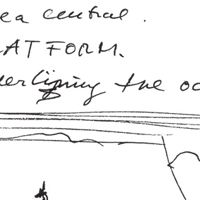 ea central.
ATFORM.
the oc